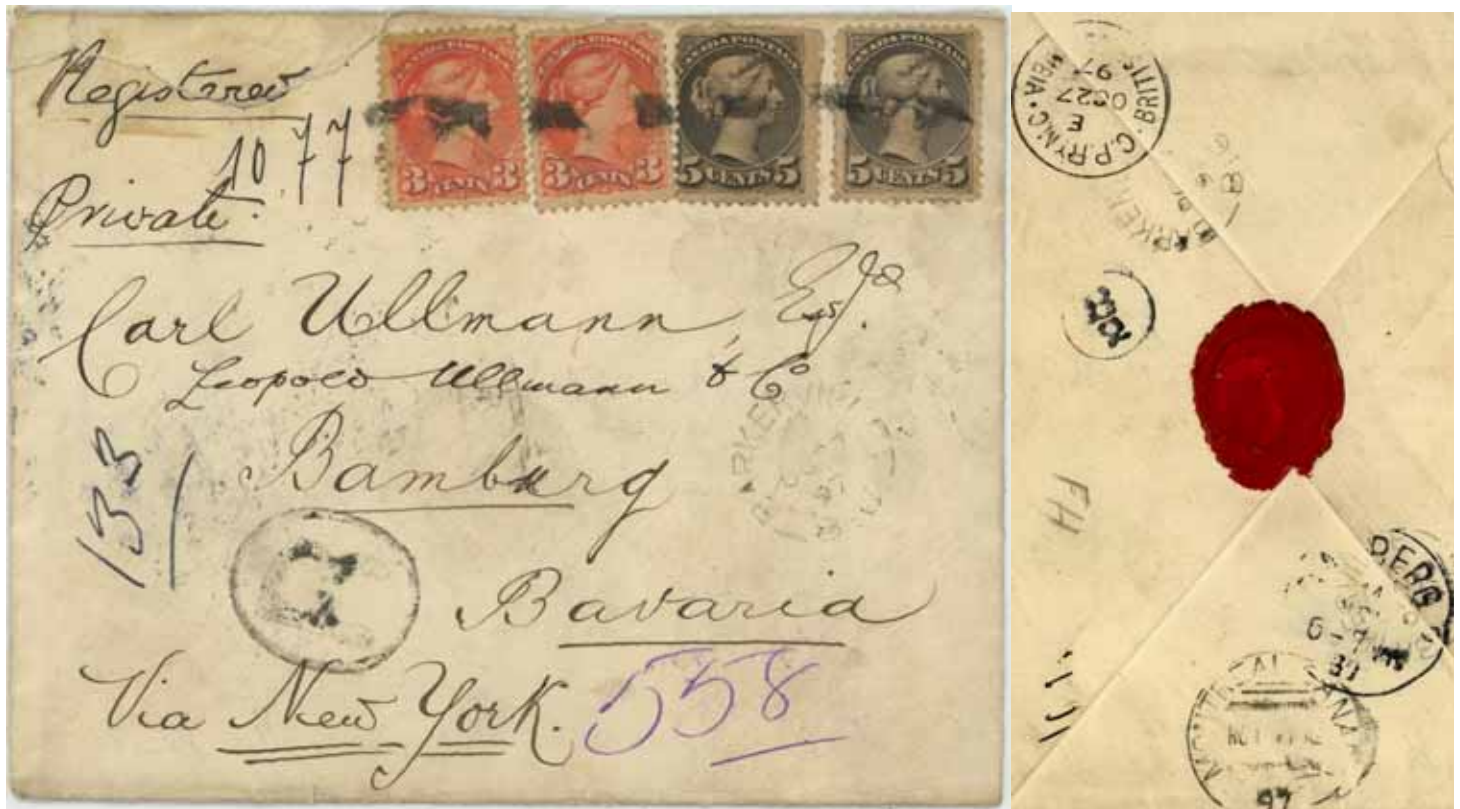 Registered
10 77
Private.
CANADA POSTAGE
3 CENTS 3
CANADA POSTAGE
3 CENTS 3
CANADA POSTAGE
5 CENTS 5
CANADA POSTAGE
5 CENTS 5
Carl Ullmann, Esq.
Leopold Ullmann & Co
Bamburg
Bavaria
133
R
Via New York.
558
C.P.RY.M.C. BRITISH
E
OC 27
97
FH
BERG
6-7
MONTREAL CANADA
97